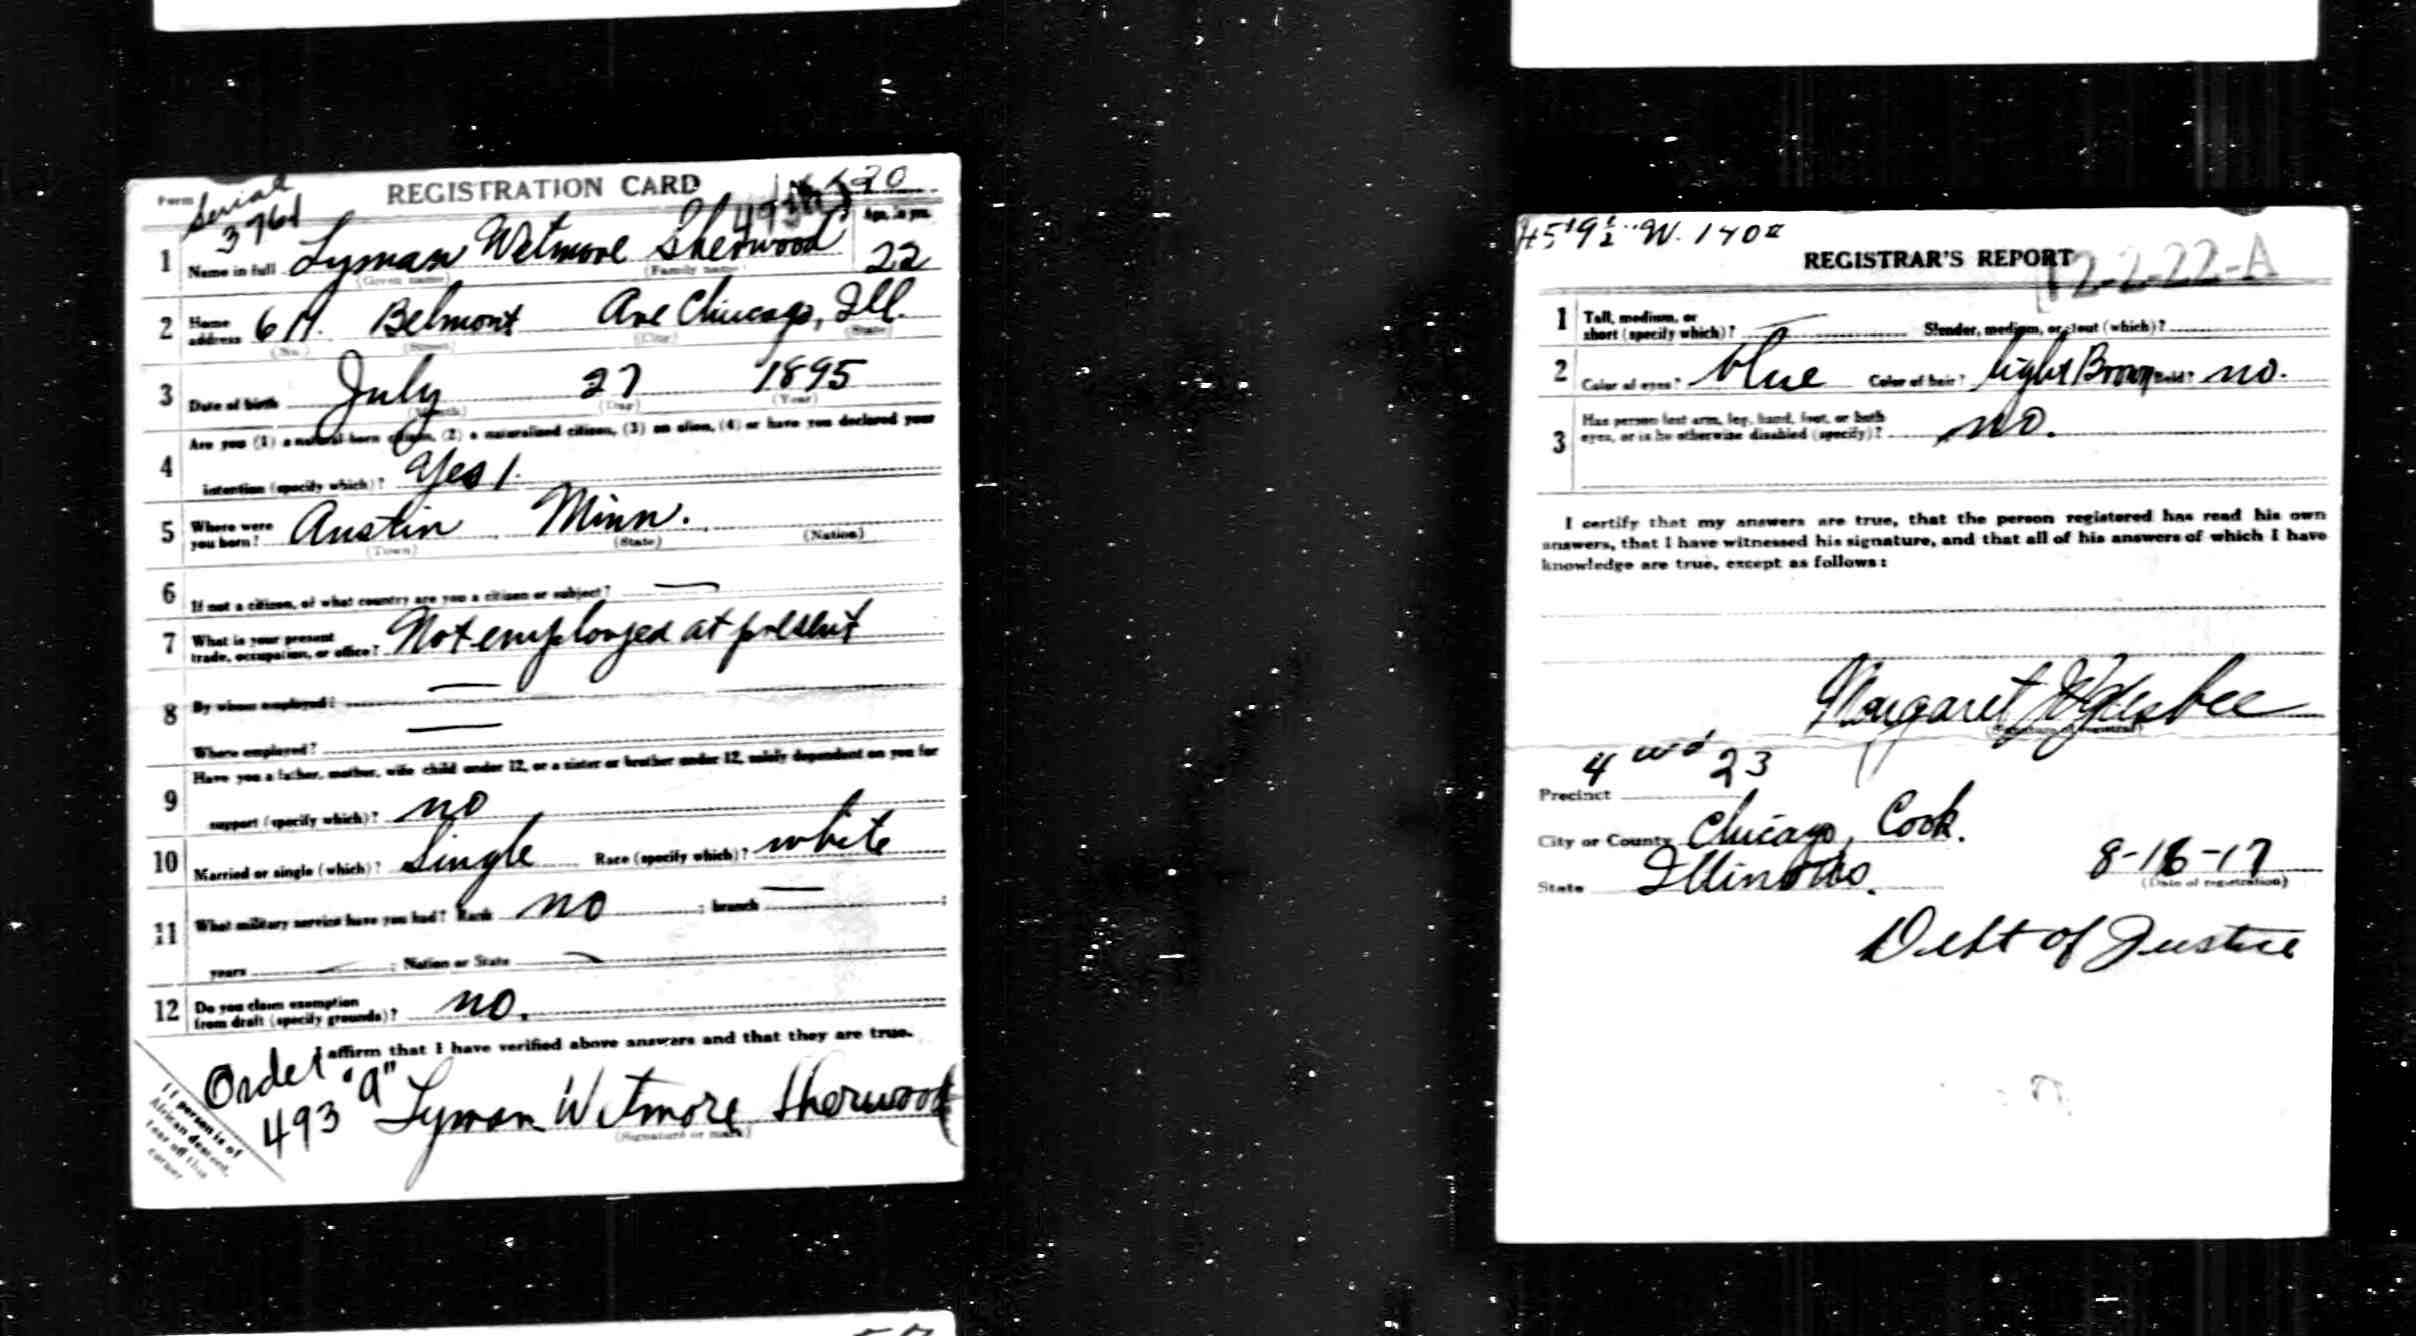 Form
Serial
3761
REGISTRATION CARD
1 Name in full Lyman Wetmore Sherwood
(Given name) (Family name)
Age, in yrs.
22
2 Home address Belmont Ave Chicago, Ill.
(No.) (Street) (City) (State)
3 Date of birth July 27 1895
(Month) (Day) (Year)
4 Are you (1) a natural-born citizen, (2) a naturalized citizen, (3) an alien, (4) or have you declared your
intention (specify which)? Yes 1.
5 Where were you born? Austin Minn.
(Town) (State) (Nation)
6 If not a citizen, of what country are you a citizen or subject? —
7 What is your present trade, occupation, or office? Not employed at present
8 By whom employed? —
Where employed? —
9 Have you a father, mother, wife child under 12, or a sister or brother under 12, solely dependent on you for
support (specify which)? no
10 Married or single (which)? Single Race (specify which)? white
11 What military service have you had? Rank no ; branch — ;
years — ; Nation or State —
12 Do you claim exemption from draft (specify grounds)? no.
I affirm that I have verified above answers and that they are true.
Order "a"
493
Lyman Wetmore Sherwood
(Signature or mark)
If person is of
African descent,
tear off this
corner
H 5'9½" W. 140#
REGISTRAR'S REPORT
12-2-22-A
1 Tall, medium, or short (specify which)? — Slender, medium, or stout (which)?
2 Color of eyes? blue Color of hair? light Brown Bald? no.
3 Has person lost arm, leg, hand, foot, or both eyes, or is he otherwise disabled (specify)? no.
I certify that my answers are true, that the person registered has read his own
answers, that I have witnessed his signature, and that all of his answers of which I have
knowledge are true, except as follows:
Margaret
(Signature of registrar)
Precinct 4 wd 23
City or County Chicago, Cook.
State Illinois.
8-16-17
(Date of registration)
Dept of Justice